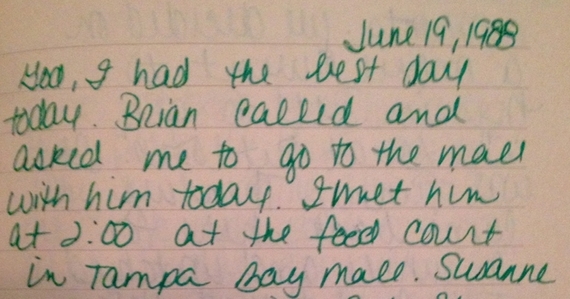 June 19, 1988
God, I had the best day
today. Brian called and
asked me to go to the mall
with him today. I met him
at 2:00 at the food court
in Tampa Bay Mall. Susanne